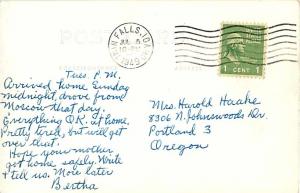 POST CARD
TWIN FALLS, IDAHO
JUL 5
1949
1 CENT 1
Tues P.M.
Arrived home Sunday
midnight, drove from
Moscow that day.
Everything O.K. at home.
Pretty tired, but will get
over that.
Hope your mother
got home safely. Write
& tell us. More later
Bertha
Mrs. Harold Haake
8306 N. Johnswoods Dr.
Portland 3
Oregon